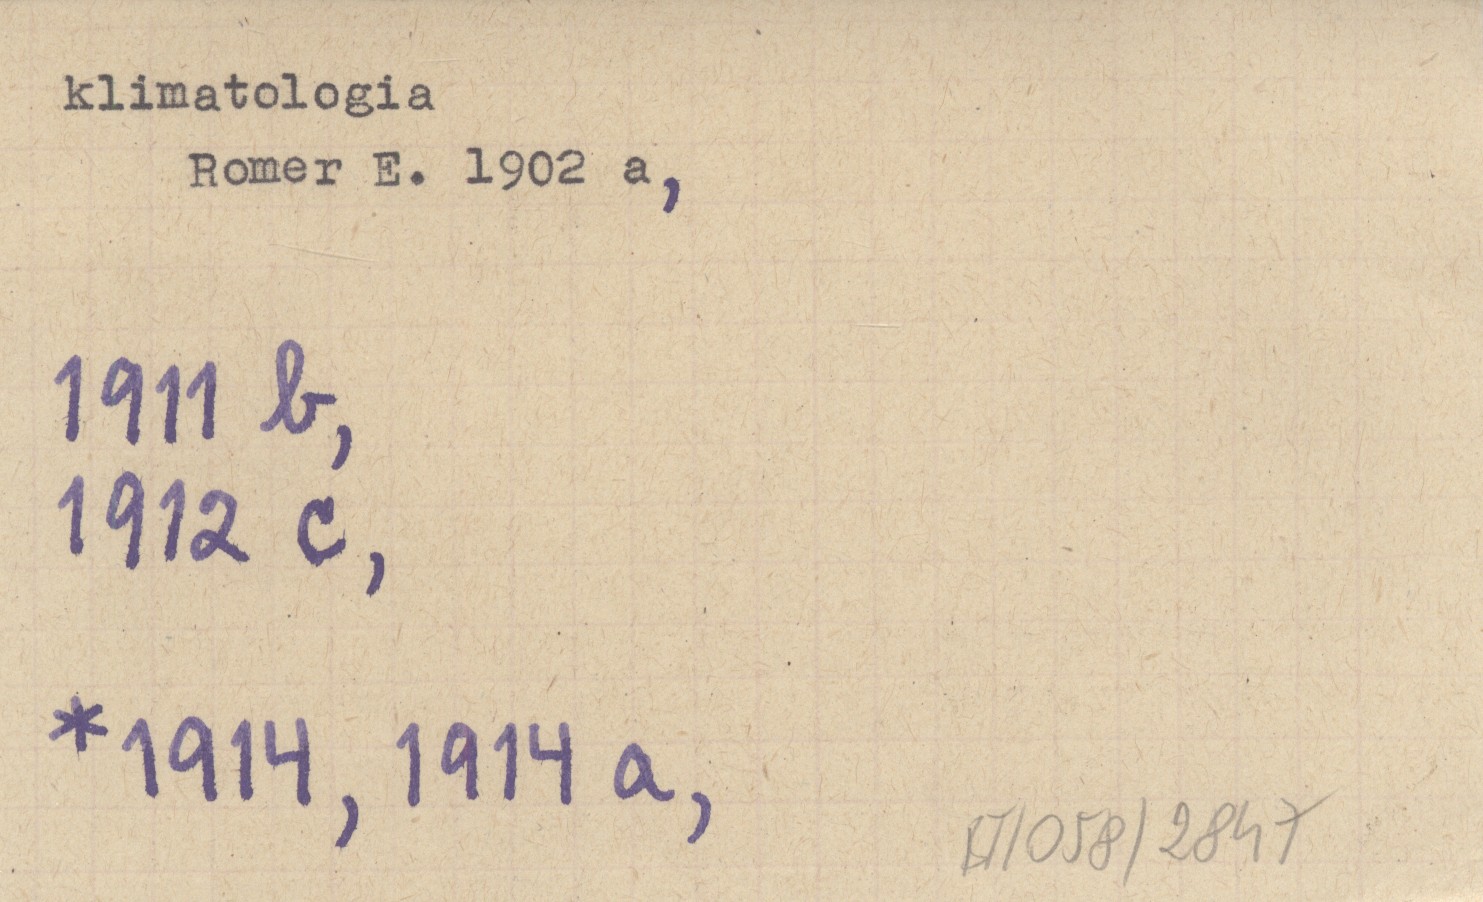 klimatologia
Romer E. 1902 a,
1911 b,
1912 c,
*1914, 1914 a,
KT/058/2847